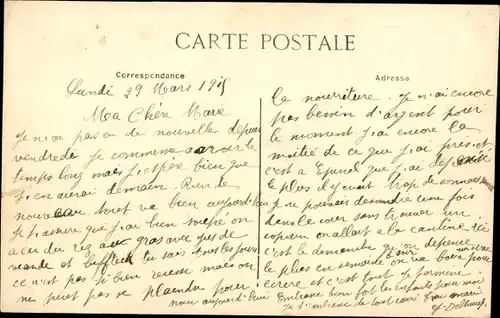 CARTE POSTALE
Correspondance
Adresse
Lundi 29 Mars 1915
Ma Chère Marie
Je n'ai pas eu de nouvelle depuis
vendredi je commence a avoir le
temps long mais j'espère bien que
j'en aurai demain. Rien de
nouveau tout va bien aujourd'hui
je t'assure que j'ai bien soupé on
a eu du riz au gras avec jus de
viande et tu sais tous les jours
ce n'est pas si bien mais on
ne peut pas se plaindre pour
la nourriture. Je n'ai encore
pas besoin d'argent pour
le moment j'ai encore la
moitié de ce que j'ai pris et
c'est a Epinal que j'ai
le plus il y avait trop de
je ne pouvais descendre une fois
dans le cour sans trouver un
copain on allait a la cantine ici
c'est le dimanche qu'on dépense
le plus en semaine on va boire pour
écrire et c'est tout je termine
aujourd'hui Embrasse bien fort les enfants pour moi
Je t'embrasse de tout cœur Ton mari